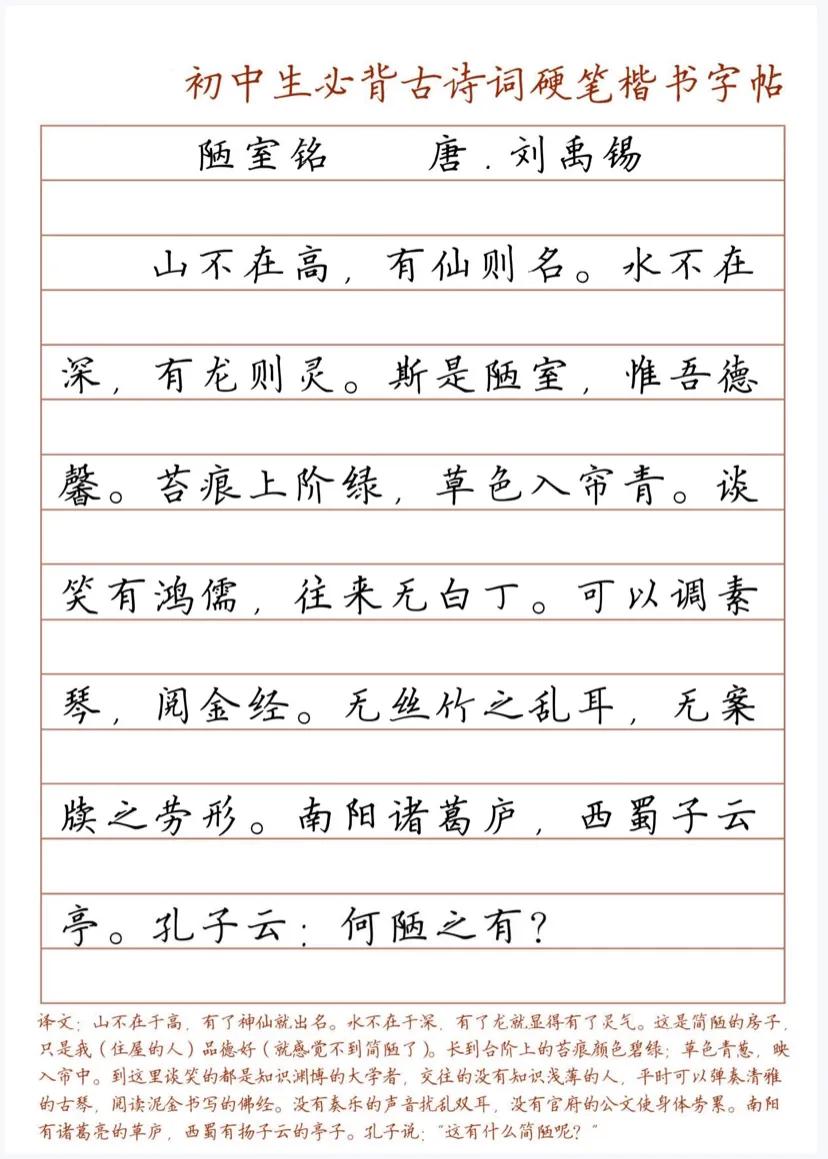 初中生必背古诗词硬笔楷书字帖
陋室铭 唐.刘禹锡
山不在高，有仙则名。水不在
深，有龙则灵。斯是陋室，惟吾德
馨。苔痕上阶绿，草色入帘青。谈
笑有鸿儒，往来无白丁。可以调素
琴，阅金经。无丝竹之乱耳，无案
牍之劳形。南阳诸葛庐，西蜀子云
亭。孔子云：何陋之有？
译文：山不在于高，有了神仙就出名。水不在于深，有了龙就显得有了灵气。这是简陋的房子，
只是我（住屋的人）品德好（就感觉不到简陋了）。长到台阶上的苔痕颜色碧绿；草色青葱，映
入帘中。到这里谈笑的都是知识渊博的大学者，交往的没有知识浅薄的人，平时可以弹奏清雅
的古琴，阅读泥金书写的佛经。没有奏乐的声音扰乱双耳，没有官府的公文使身体劳累。南阳
有诸葛亮的草庐，西蜀有扬子云的亭子。孔子说：“这有什么简陋呢？”